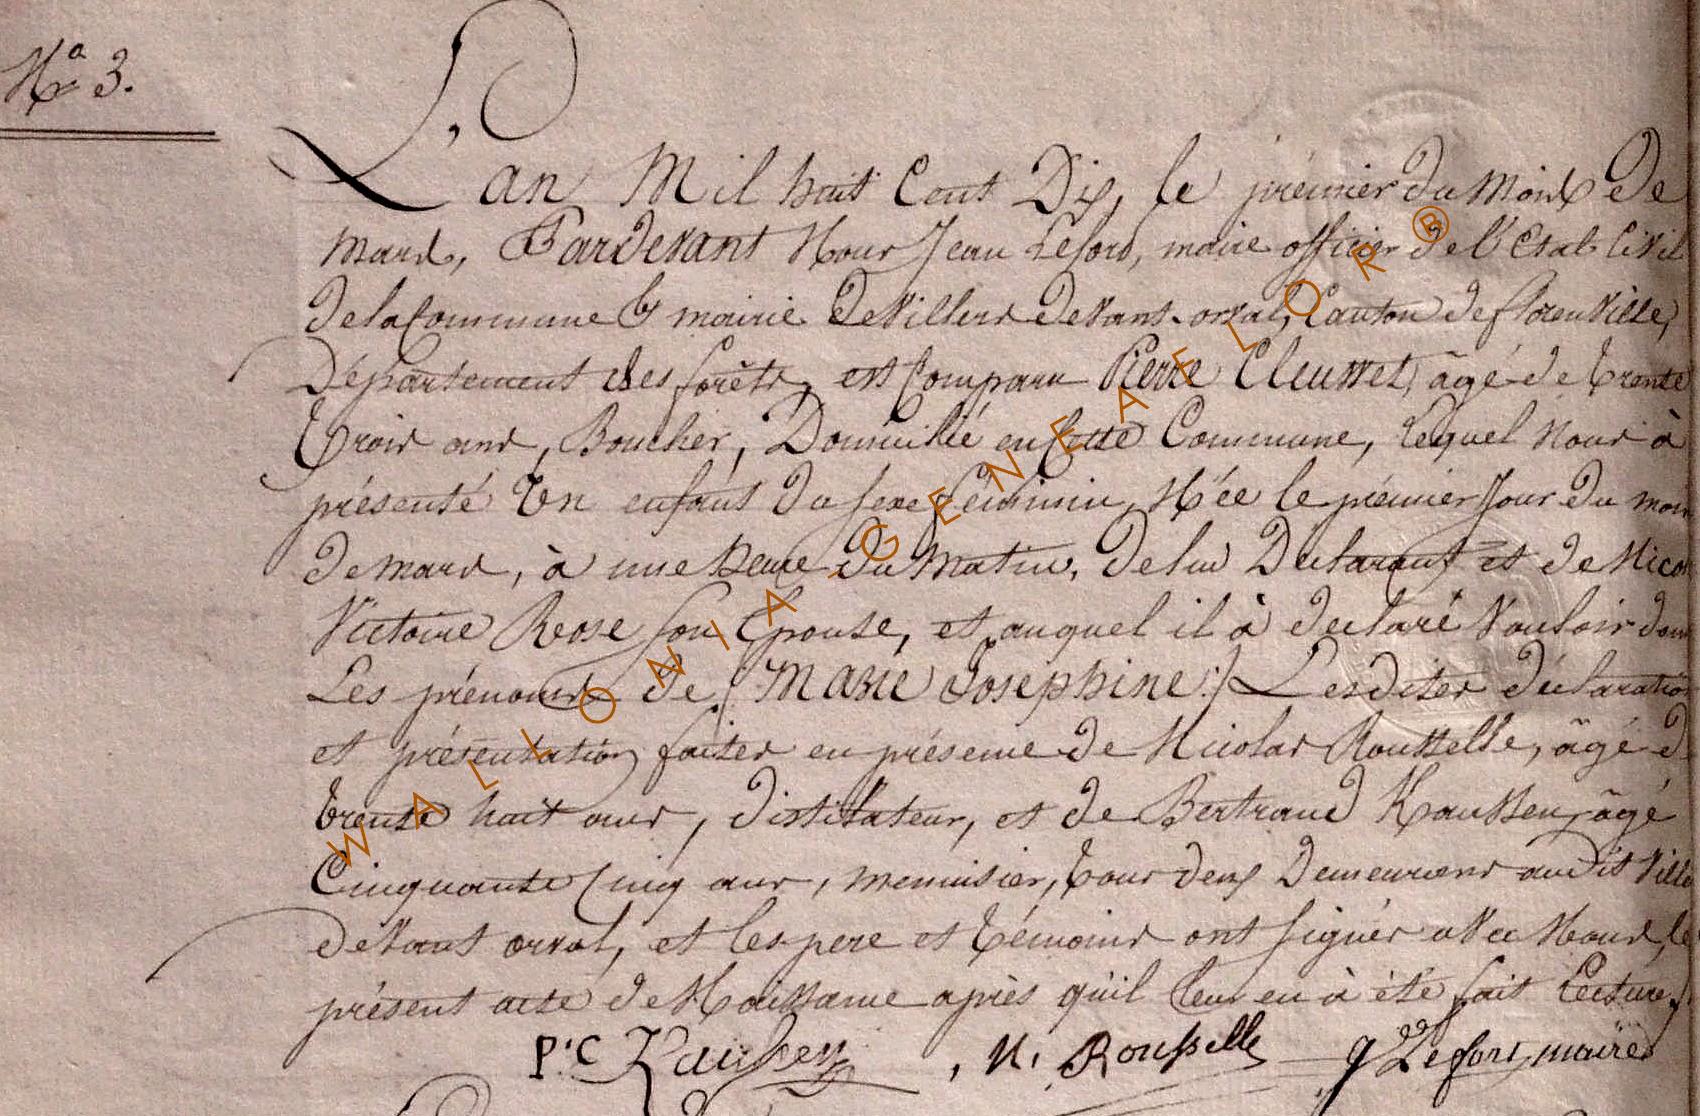 Nº 3.
L'an Mil huit Cent Dix, le prémier du Mois De
mars, Pardevant Nous Jean Lefort, maire officier de l'Etat Civil
de la Commune & mairie de Villers devant-orval, Canton de florenville,
Département des forêts, est Comparu Pierre Cleusset, âgé de trente
trois ans, Boucher, Domicilié en Cette Commune, Lequel Nous à
présenté Un enfant du sexe féminin, Née le prémier Jour du mois
de mars, à une heure du Matin, de lui Déclarant et de Nico
Victoire Rose son Epouse, et auquel il à déclaré Vouloir don
Les prénoms de (Marie Josephine:) Lesdites déclaration
et présentation faites en présence de Nicolas Rousselle, âgé d
trente huit ans, distillateur, et de Bertrand Kaussen, âgé
Cinquante Cinq ans, menuisier, tous deux Demeurens audit Ville
devant orval, et les pere et témoins ont signés avec Nous, le
présent acte de Naissance après qu'il leur en à été fait Lecture.
P. C Kaussen , N. Rousselle J Lefort, maire
WALLONIA-GENEAFLOR®